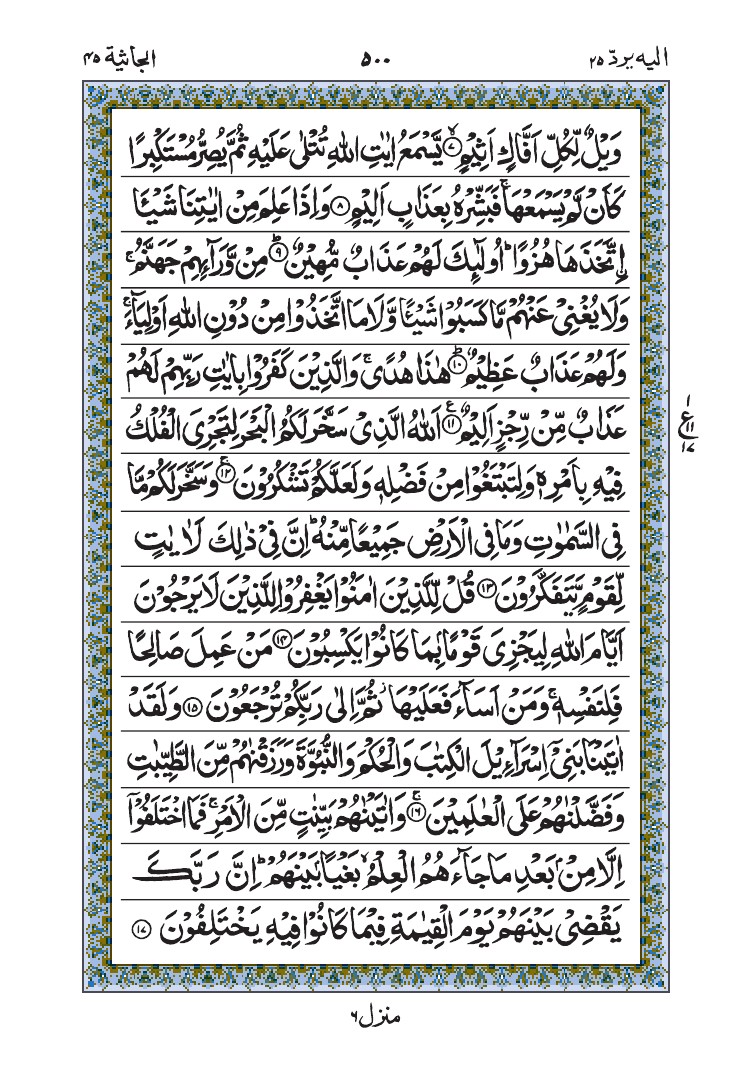 الیه یردّ ۲۵
۵۰۰
الجاثیة ۴۵
وَيْلٌ لِّكُلِّ اَفَّاكٍ اَثِيْمٍ ۙ‏﴿۷﴾ يَّسْمَعُ اٰيٰتِ اللّٰهِ تُتْلٰى عَلَيْهِ ثُمَّ يُصِرُّ مُسْتَكْبِرًا
كَاَنْ لَّمْ يَسْمَعْهَا ۚ فَبَشِّرْهُ بِعَذَابٍ اَلِيْمٍ ﴿۸﴾ وَاِذَا عَلِمَ مِنْ اٰيٰتِنَا شَيْـًٔا
اِۨتَّخَذَهَا هُزُوًا ؕ اُولٰٓئِكَ لَهُمْ عَذَابٌ مُّهِيْنٌ ؕ‏﴿۹﴾ مِنْ وَّرَآئِهِمْ جَهَنَّمُ ۚ
وَلَا يُغْنِىْ عَنْهُمْ مَّا كَسَبُوْا شَيْـًٔا وَّلَا مَا اتَّخَذُوْا مِنْ دُوْنِ اللّٰهِ اَوْلِيَآءَ ۚ
وَلَهُمْ عَذَابٌ عَظِيْمٌ ؕ‏﴿۱۰﴾ هٰذَا هُدًى ۚ وَالَّذِيْنَ كَفَرُوْا بِاٰيٰتِ رَبِّهِمْ لَهُمْ
عَذَابٌ مِّنْ رِّجْزٍ اَلِيْمٌ ۧ‏﴿۱۱﴾ اَللّٰهُ الَّذِىْ سَخَّرَ لَكُمُ الْبَحْرَ لِتَجْرِىَ الْفُلْكُ
فِيْهِ بِاَمْرِهٖ وَلِتَبْتَغُوْا مِنْ فَضْلِهٖ وَلَعَلَّكُمْ تَشْكُرُوْنَ ۚ‏﴿۱۲﴾ وَسَخَّرَ لَكُمْ مَّا
فِى السَّمٰوٰتِ وَمَا فِى الْاَرْضِ جَمِيْعًا مِّنْهُ ؕ اِنَّ فِىْ ذٰلِكَ لَاٰيٰتٍ
لِّقَوْمٍ يَّتَفَكَّرُوْنَ ﴿۱۳﴾ قُلْ لِّلَّذِيْنَ اٰمَنُوْا يَغْفِرُوْا لِلَّذِيْنَ لَا يَرْجُوْنَ
اَيَّامَ اللّٰهِ لِيَجْزِىَ قَوْمًۢا بِمَا كَانُوْا يَكْسِبُوْنَ ﴿۱۴﴾ مَنْ عَمِلَ صَالِحًا
فَلِنَفْسِهٖ ۚ وَمَنْ اَسَآءَ فَعَلَيْهَا ۫ ثُمَّ اِلٰى رَبِّكُمْ تُرْجَعُوْنَ ﴿۱۵﴾ وَلَقَدْ
اٰتَيْنَا بَنِىْۤ اِسْرَآءِيْلَ الْكِتٰبَ وَالْحُكْمَ وَالنُّبُوَّةَ وَرَزَقْنٰهُمْ مِّنَ الطَّيِّبٰتِ
وَفَضَّلْنٰهُمْ عَلَى الْعٰلَمِيْنَ ۚ‏﴿۱۶﴾ وَاٰتَيْنٰهُمْ بَيِّنٰتٍ مِّنَ الْاَمْرِ ۚ فَمَا اخْتَلَفُوْۤا
اِلَّا مِنْۢ بَعْدِ مَا جَآءَهُمُ الْعِلْمُ ۙ بَغْيًۢا بَيْنَهُمْ ؕ اِنَّ رَبَّكَ
يَقْضِىْ بَيْنَهُمْ يَوْمَ الْقِيٰمَةِ فِيْمَا كَانُوْا فِيْهِ يَخْتَلِفُوْنَ ﴿۱۷﴾
۱
ع
۱۱
۱۷
منزل ۶